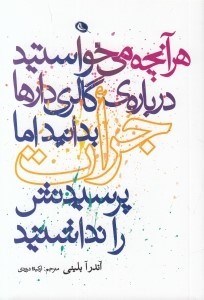 هر آنچه می‌خواستید
درباره‌ی گالری‌دارها
بدانید اما
جرأت
پرسیدنش
را نداشتید
آندرآ بلینی مترجم: